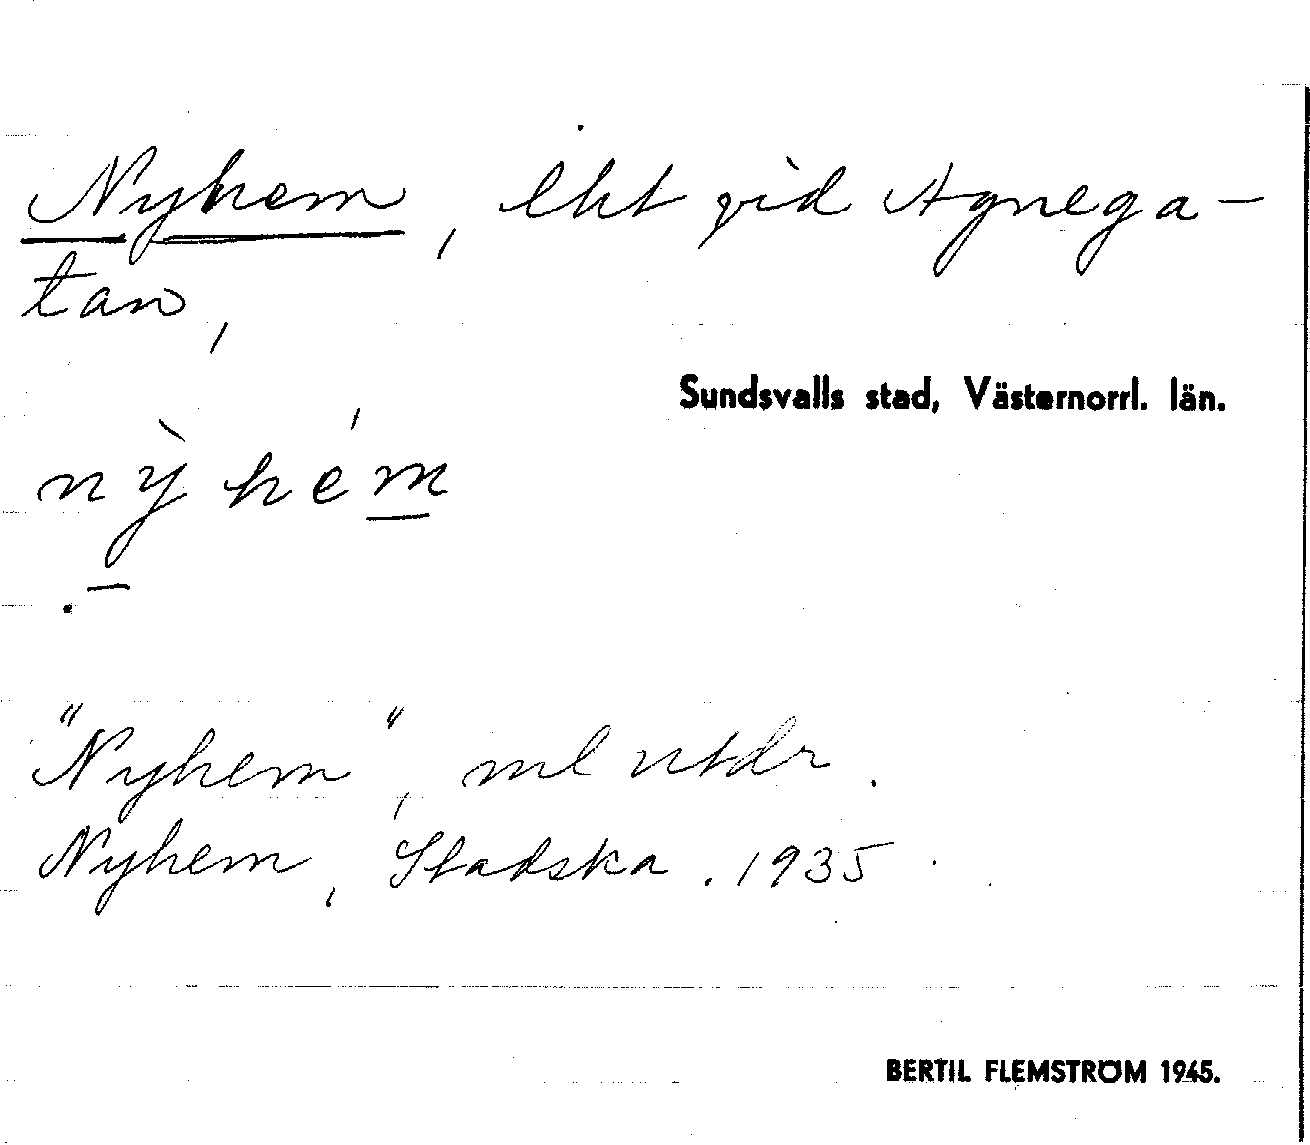 Nyhem, lht vid Agnega-
tan,
Sundsvalls stad, Västernorrl. län.
nỳhém
"Nyhem", ml utdr.
Nyhem, Stadska. 1935
BERTIL FLEMSTRÖM 1945.